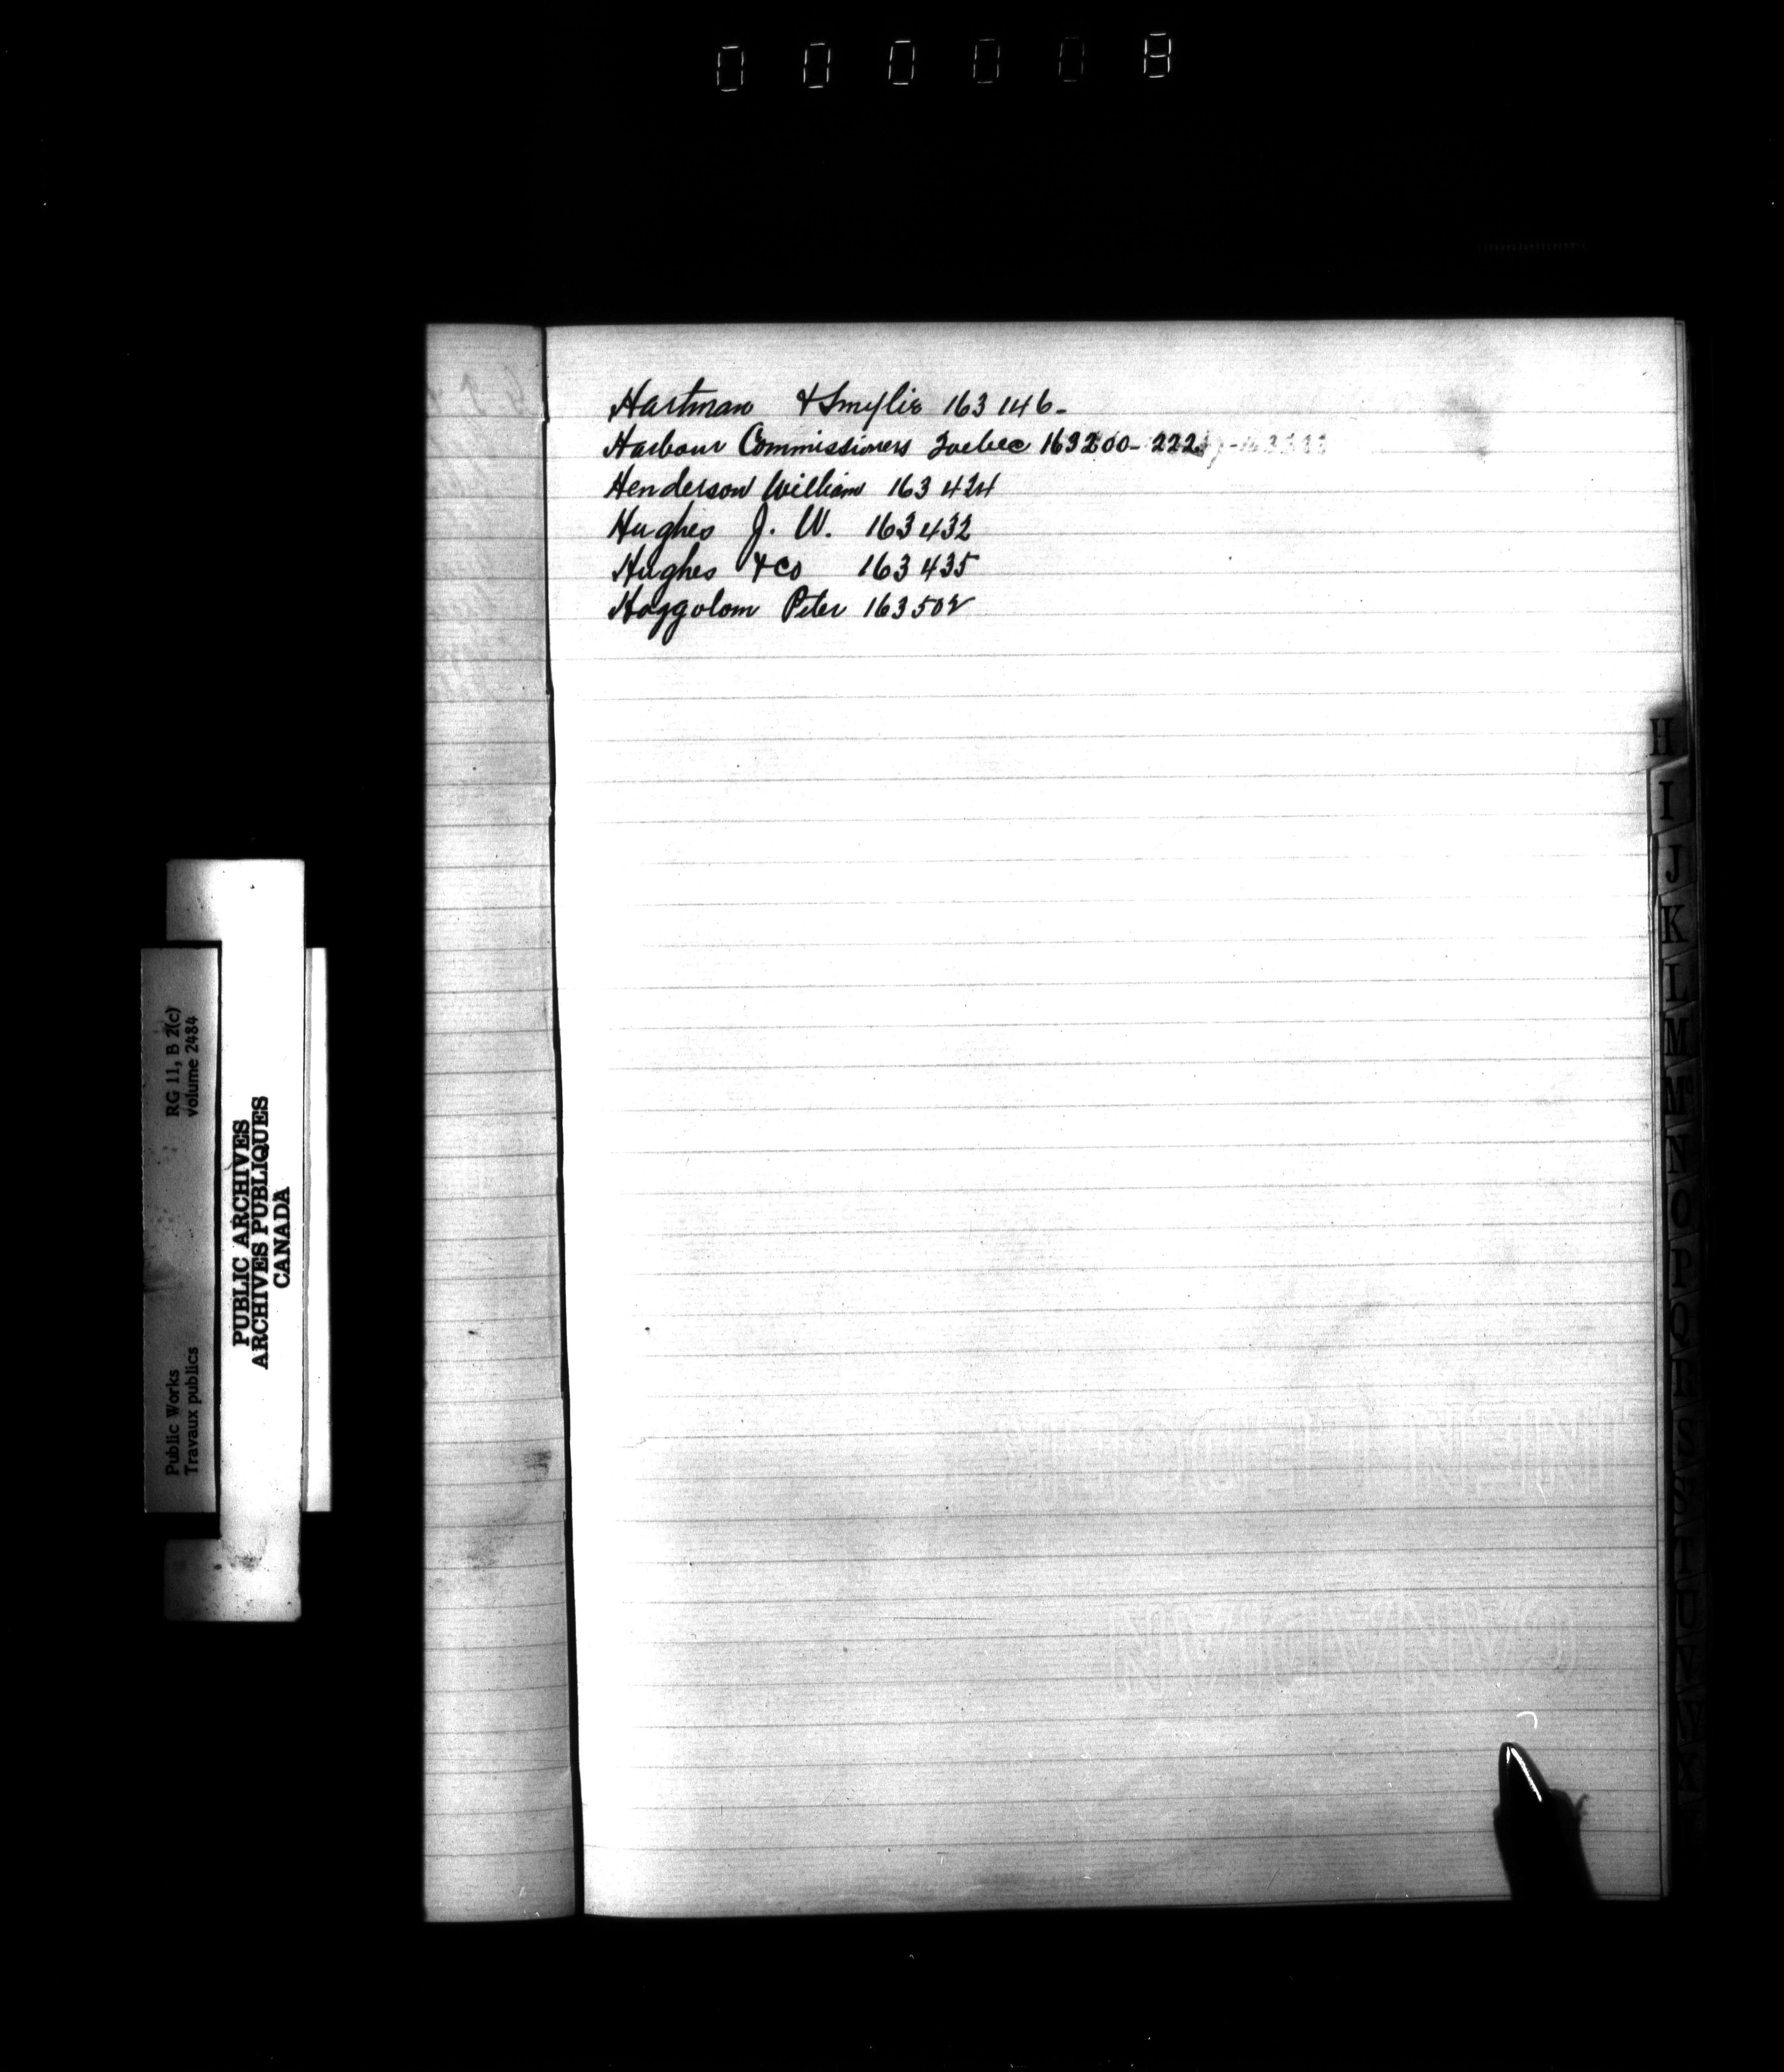 000008
Hartman & Smylie 163146-
Harbour Commissioners Quebec 163200-222
Henderson William 163424
Hughes J. W. 163432
Hughes & Co 163435
Peter 163502
H
I
J
K
L
M
Mc
N
O
P
Q
R
S
T
U
V
W
X
RG 11, B 2(c)
volume 2484
PUBLIC ARCHIVES
ARCHIVES PUBLIQUES
CANADA
Public Works
Travaux publics